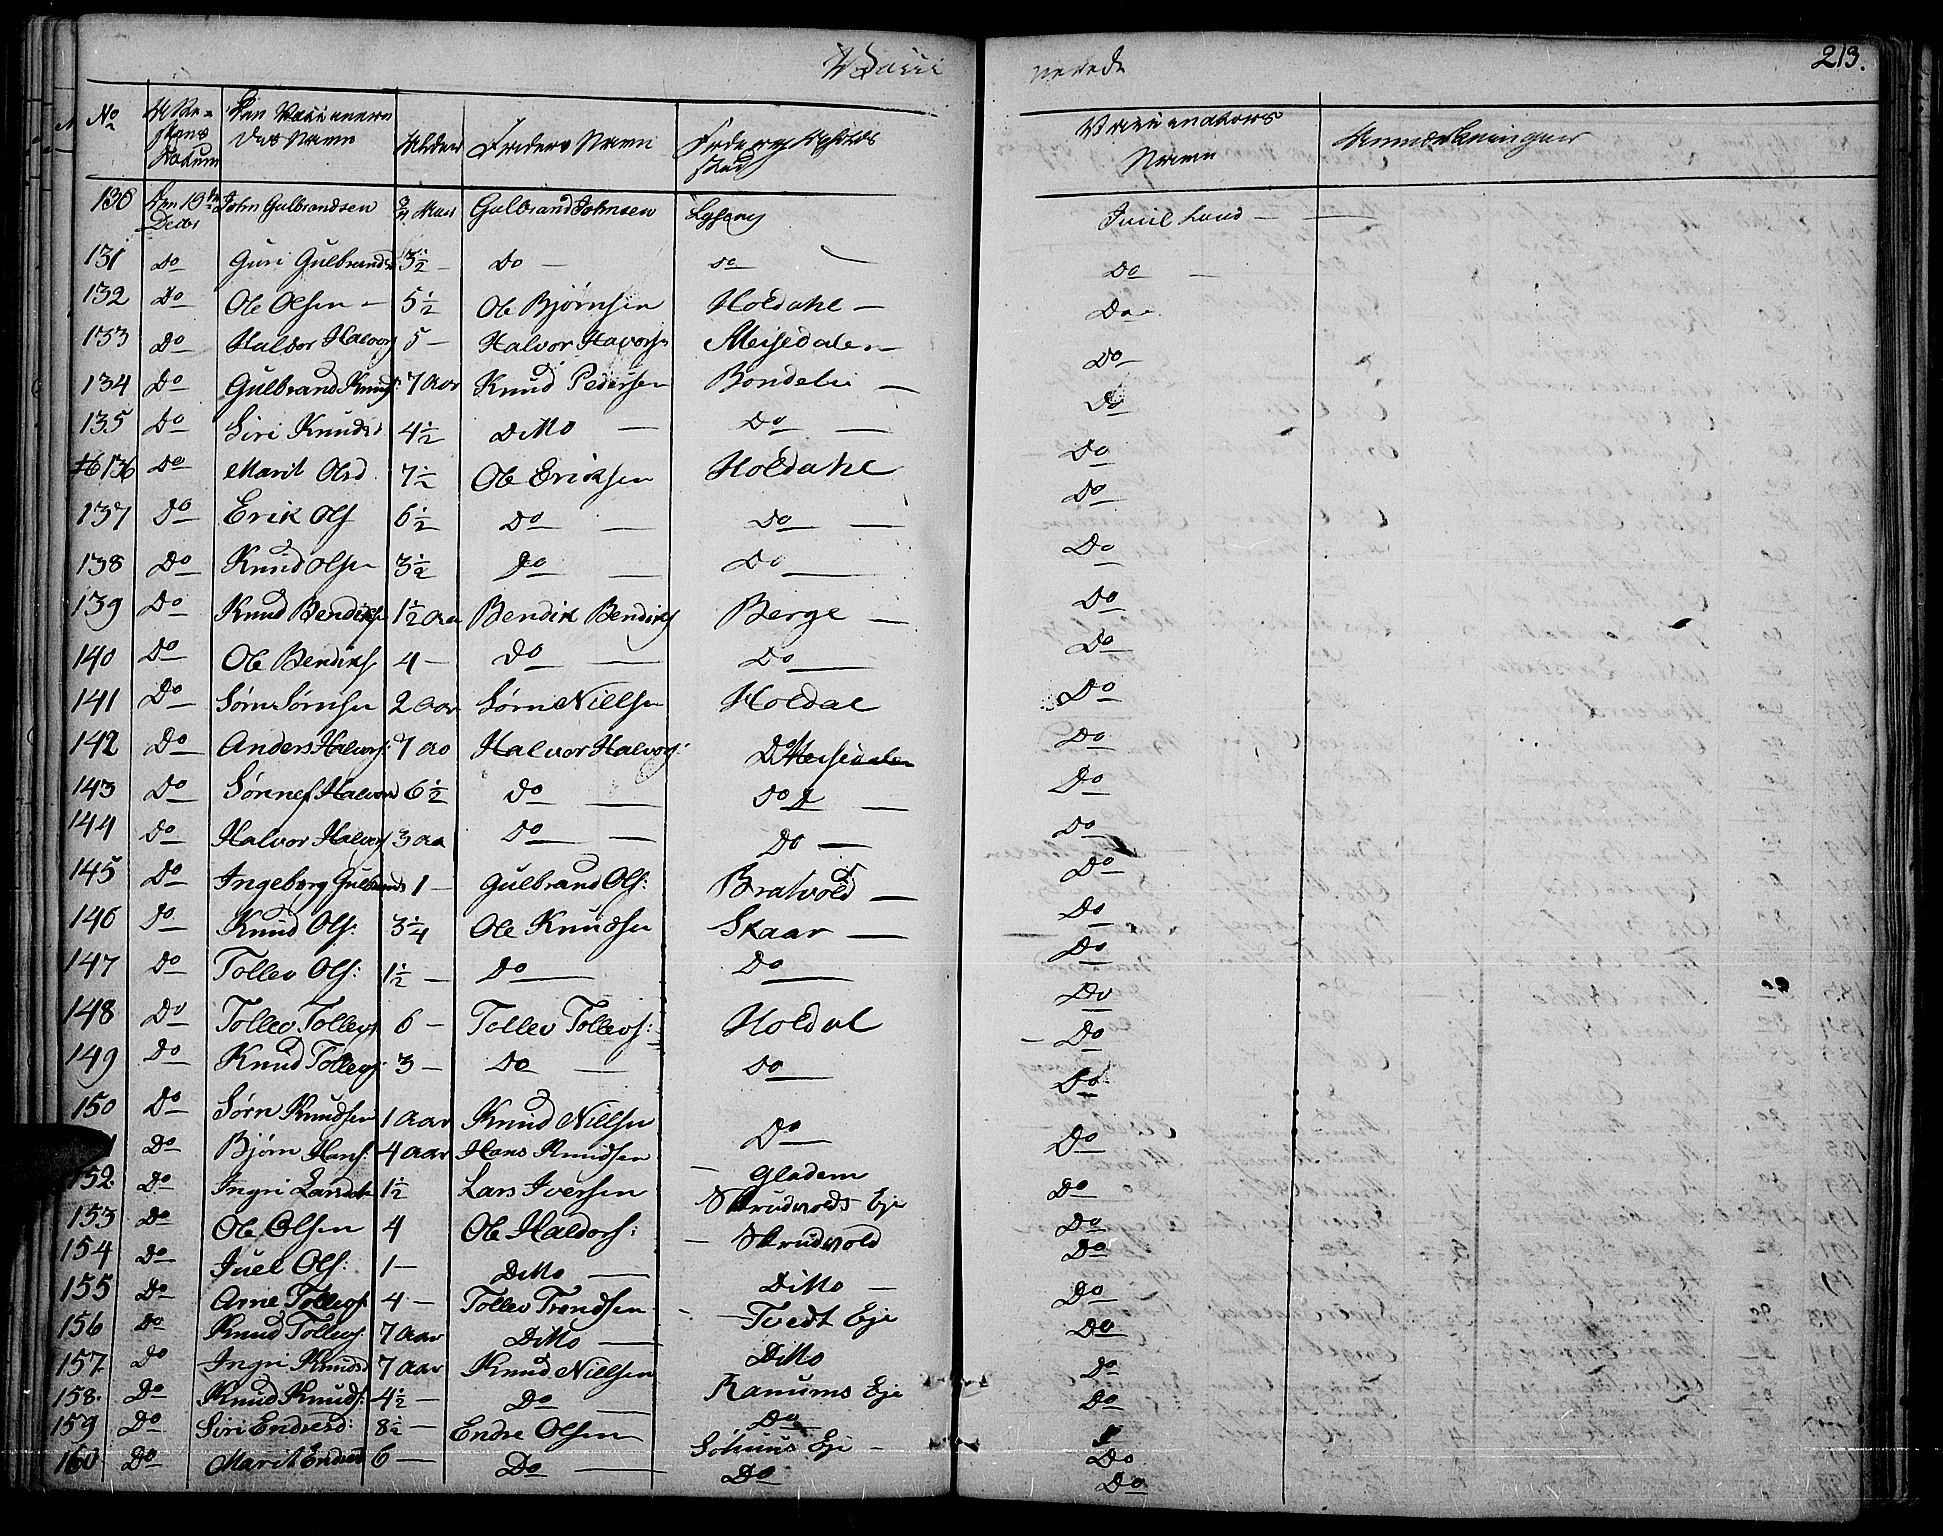 Vacci nerede
213.
No Attestens Datum Den Vaccineredes Navn Alder Faders Navn Fødes og Opholds Sted Vaccinateurs Navn Anmærkninger
130 Den 19de Decbr John Gulbrandsen 3/4 Aar Gulbrand Johnsen Juul Lund —
131 Do Guri Gulbrands 3 1/2 — Do — Do Do —
132 Do Ole Olsen — 5 1/2 Ole Bjørnsen Holdahl — Do
133 Do Halvor Halvors 5 — Halvor Havorsn Meisedalen — Do
134 Do Gulbrand Knuds: 7 Aar Knud Pedersen Bondelie — Do
135 Do Siri Knudsd 4 1/2 Ditto — Do — Do
136 Do Marit Olsd. 7 1/2 Ole Eriksen Holdahl Do
137 Do Erik Ols 6 1/2 Do — Do — Do
138 Do Knud Olsen 3 1/2 Do — Do — Do
139 Do Knud Bendiks 1 1/2 Aar Bendik Bendiks Berge — Do
140 Do Ole Bendiks 4 — Do — Do — Do
141 Do Sørn Sørnsen 2 Aar Sørn Nillsen Holdal Do
142 Do Anders Halvors: 7 Aa Halvor Halvors: Do Meisedalen Do
143 Do Sønnef Halvord 6 1/2 Do — Do — Do
144 Do Halvor Halvors 3 Aa Do — Do — Do
145 Do Ingeborg Gulbrands 1 — Gulbrand Ols: Bratvold — Do
146 Do Knud Ols: 3 1/4 Ole Knudsen Skaar — Do
147 Do Tollev Ols: 1 1/2 — Do — Do — Do
148 Do Tollev Tollevs 6 — Tollev Tollevs: Holdal Do
149 Do Knud Tollevs: 3 — Do — Do — Do
150 Do Sørn Knudsen 1 Aar Knud Nillsen Do — Do
1 Do Bjørn Hans: 4 Aar Hans Knudsen — Gladem Do
152. Do Ingri Larsdt 1 1/2 Lars Iversen Skrudvolds Eje Do
153 Do Ole Olsen 4 Ole Haldors: — Skrudvold Do
154 Do Juel Ols: 1 — Ditto — Ditto — Do
155 Do Arne Tollevs 4 — Tollev Trondsen — Tvedt Eje Do
156 Do Knud Tollevs: 7 Aar Ditto — Ditto Do
157 Do Ingri Knudsd 7 Aar Knud Nillsen Ranums Eje Do
158. Do Knud Knuds: 4 1/2 — Do — Do Do
159 Do Siri Endresd: 8 1/2 — Endre Olsen Eje — Do
160 Do Marit Endresd 6 — Do — Do Do